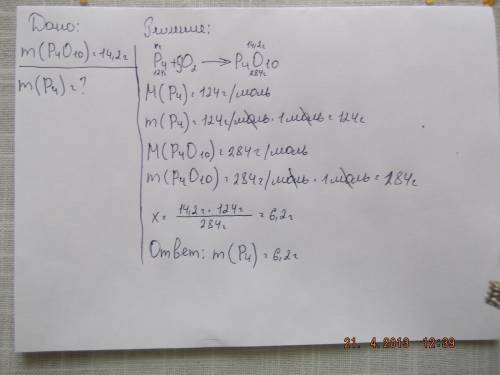 Дано:
m(P4O10)=14,2г
m(P4)=?
Решение:
x г 14,2г
P4+5O2 → P4O10
124г 284г
M(P4)=124г/моль
m(P4)=124г/моль · 1моль = 124г
M(P4O10)=284г/моль
m(P4O10)=284г/моль · 1моль = 284г
x = 14,2г · 124г / 284г = 6,2г
Ответ: m(P4)=6,2г
21. 4.2013 12:39